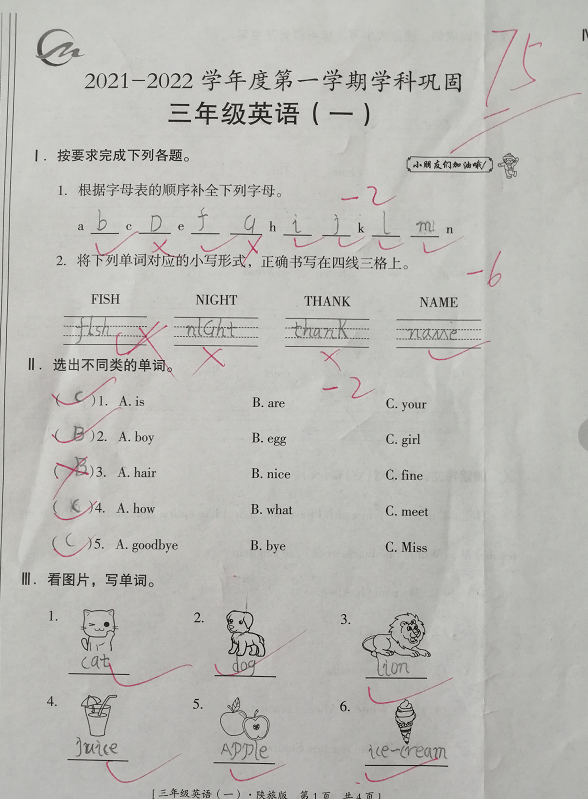 75
2021-2022 学年度第一学期学科巩固
三年级英语(一)
Ⅰ. 按要求完成下列各题。
小朋友们加油哦!
1. 根据字母表的顺序补全下列字母。
-2
a b c D e f q h i j k l m n
2. 将下列单词对应的小写形式,正确书写在四线三格上。
-6
FISH NIGHT THANK NAME
fish niGht thanK name
Ⅱ. 选出不同类的单词。
-2
(C)1. A. is B. are C. your
(B)2. A. boy B. egg C. girl
(B)3. A. hair B. nice C. fine
(C)4. A. how B. what C. meet
(C)5. A. goodbye B. bye C. Miss
Ⅲ. 看图片,写单词。
1. 2. 3.
cat dog lion
4. 5. 6.
juice APPle ice-cream
[三年级英语(一)·陕旅版 第1页 共4页]